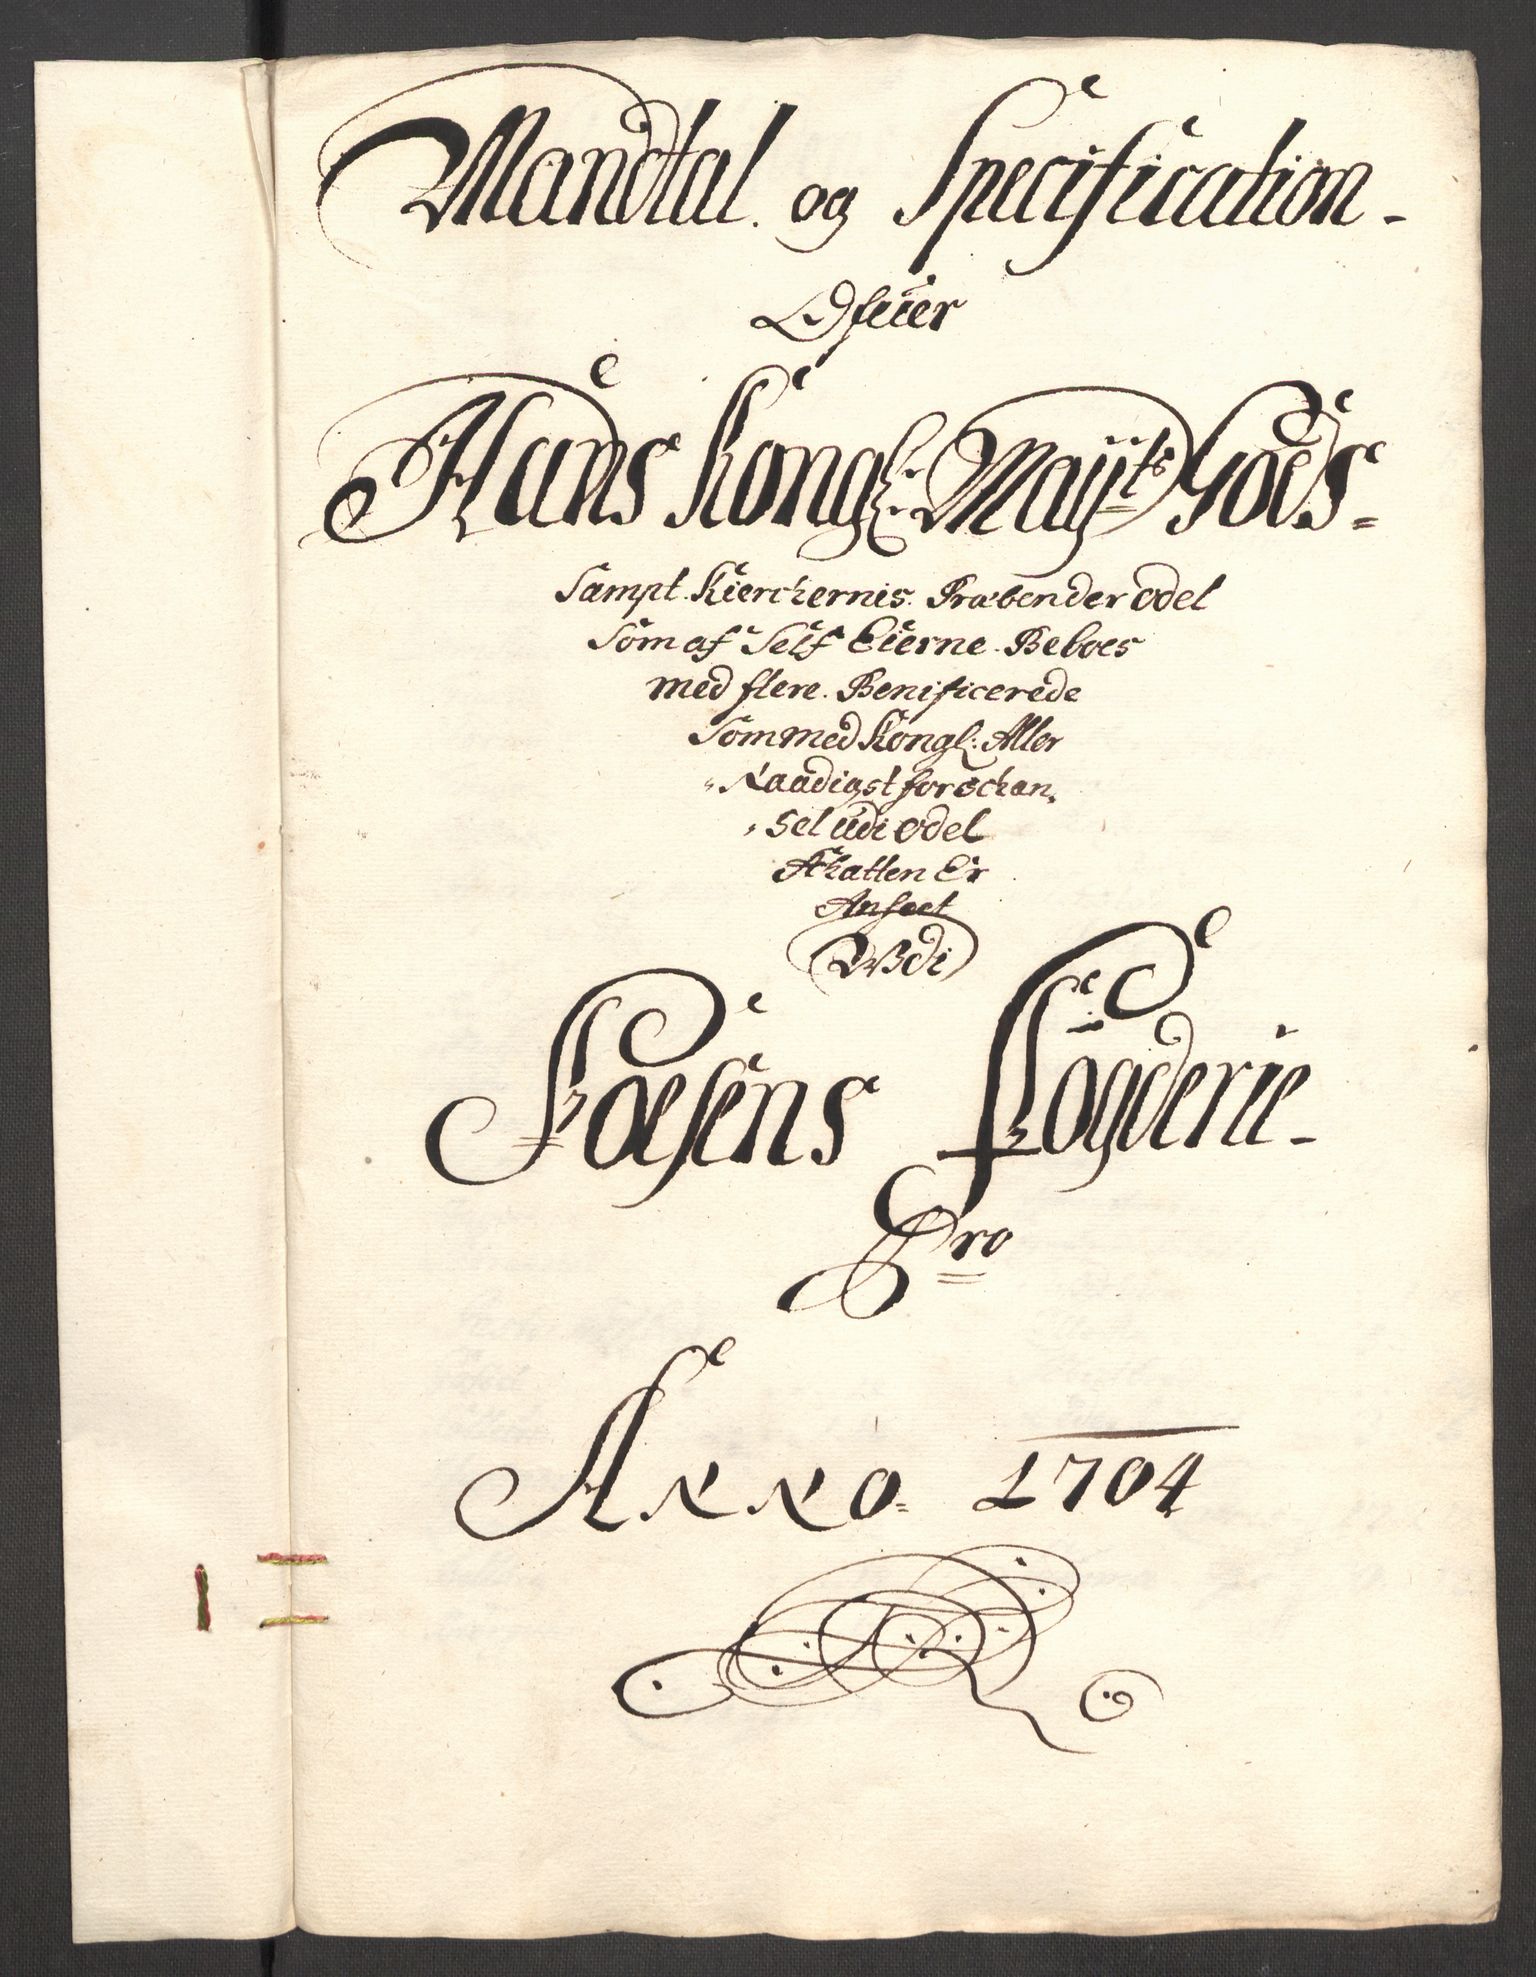 Mandtal. og Specification-
Ofuer
Hans Kongl: Mayts Gods-
Sampt Kierckernis. Præbender odel
Som af Self Eierne. Beboes
med flere. Benificerede
Som med Kongl: Aller
Naadigst forschan,
sel udi odel
Skatten Er
Anseet
Udi
Fosens Fogderie-
Pro
Anno 1704